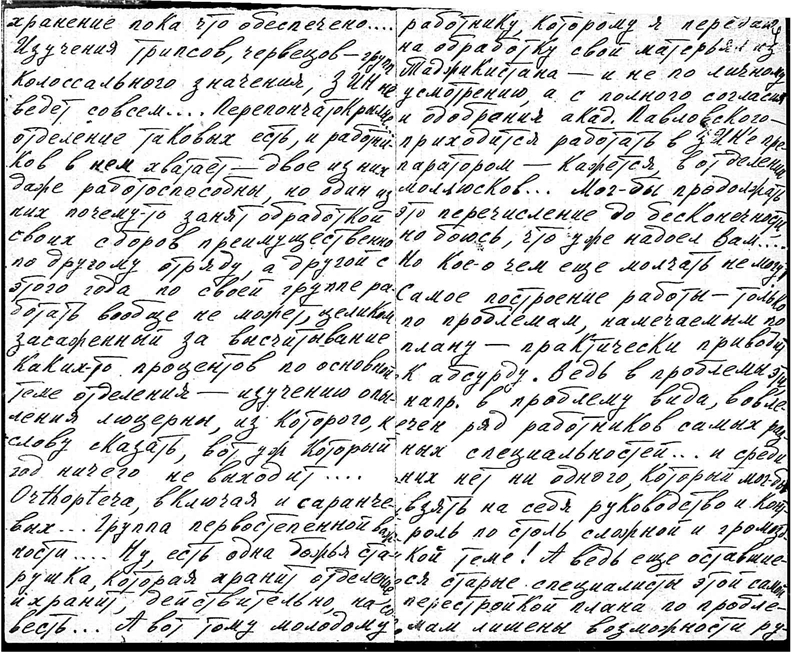 хранение пока что обеспечено....
Изучения трипсов, червецов — групп
колоссального значения, ЗИН не
ведет совсем.... Перепончатокрылые
отделение таковых есть, и работни-
ков в нем хватает — двое из них
даже работоспособны, но один из
них почему-то занят обработкой
своих сборов преимущественно
по другому отряду, а другой с
этого года по своей группе ра-
ботать вообще не может, целиком
засаженный за высчитывание
каких-то процентов по основной
теме отделения — изучению опы-
ления люцерны, из которого, к
слову сказать, вот уж который
год ничего не выходит....
Orthoptera, включая и саранче-
вых... Группа первостепенной важ-
ности.... Ну, есть одна божья ста-
рушка, которая хранит отделение
и хранит, действительно, на со-
весть... А вот тому молодому
работнику, которому я передаю
на обработку свой матерьял из
Таджикистана — и не по личному
усмотрению, а с полного согласия
и одобрения акад. Павловского —
приходится работать в ЗИН'е пре-
паратором — кажется, в отделении
моллюсков... Мог-бы продолжать
это перечисление до бесконечности
но боюсь, что уже надоел Вам....
Но кое о чем еще молчать не могу:
Самое построение работы — только
по проблемам, намечаемым по
плану — практически приводит
к абсурду. Ведь в проблемы эти
напр. в проблему вида, вовле-
чен ряд работников самых раз-
ных специальностей... и среди
них нет ни одного, который мог-бы
взять на себя руководство и конт-
роль по столь сложной и громозд-
кой теме! А ведь еще оставшие-
ся старые специалисты этой самой
перестройкой плана по пробле-
мам лишены возможности ру-